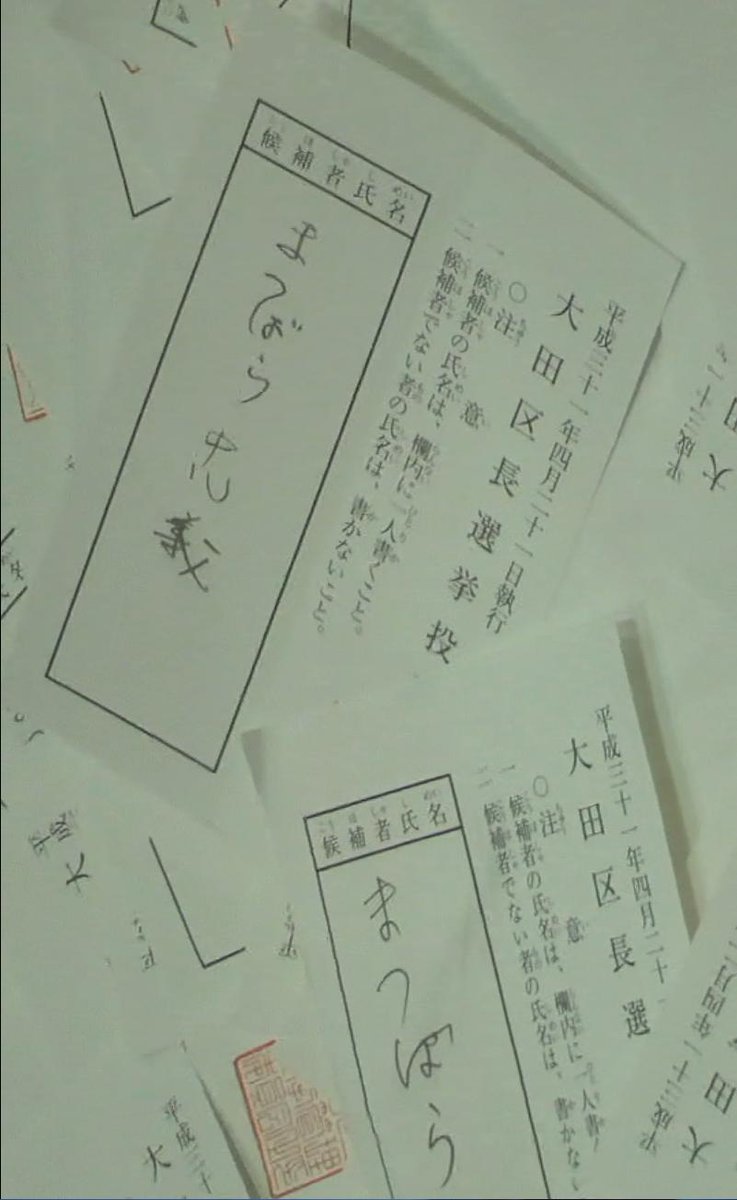 平成三十一年四月二十一日執行
大田区長選挙投
○注意
一 候補者の氏名は、欄内に一人書くこと。
二 候補者でない者の氏名は、書かないこと。
候補者氏名
まつばら忠義
平成三十一年四月二十
大田区長選
○注意
一 候補者の氏名は、欄内に一人書
二 候補者でない者の氏名は、書かない
候補者氏名
まつばら
平成三十
大
平成三十一年四月二
大田
平成三十二
大田